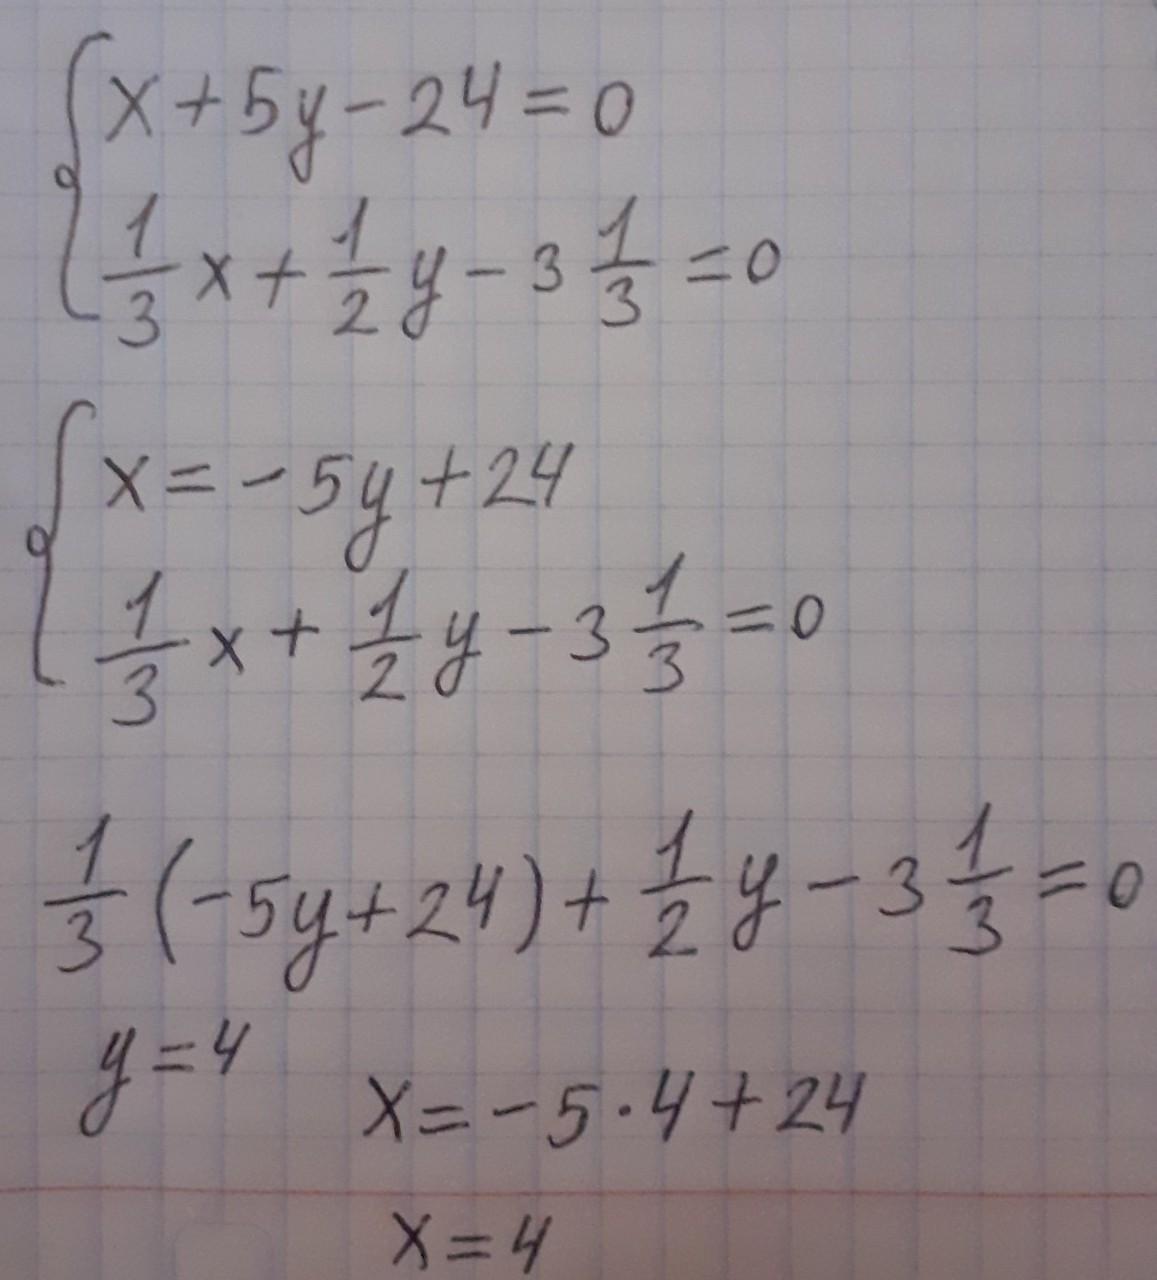 x + 5y - 24 = 0
1/3 x + 1/2 y - 3 1/3 = 0
x = - 5y + 24
1/3 x + 1/2 y - 3 1/3 = 0
1/3 (- 5y + 24) + 1/2 y - 3 1/3 = 0
y = 4
x = - 5 · 4 + 24
x = 4